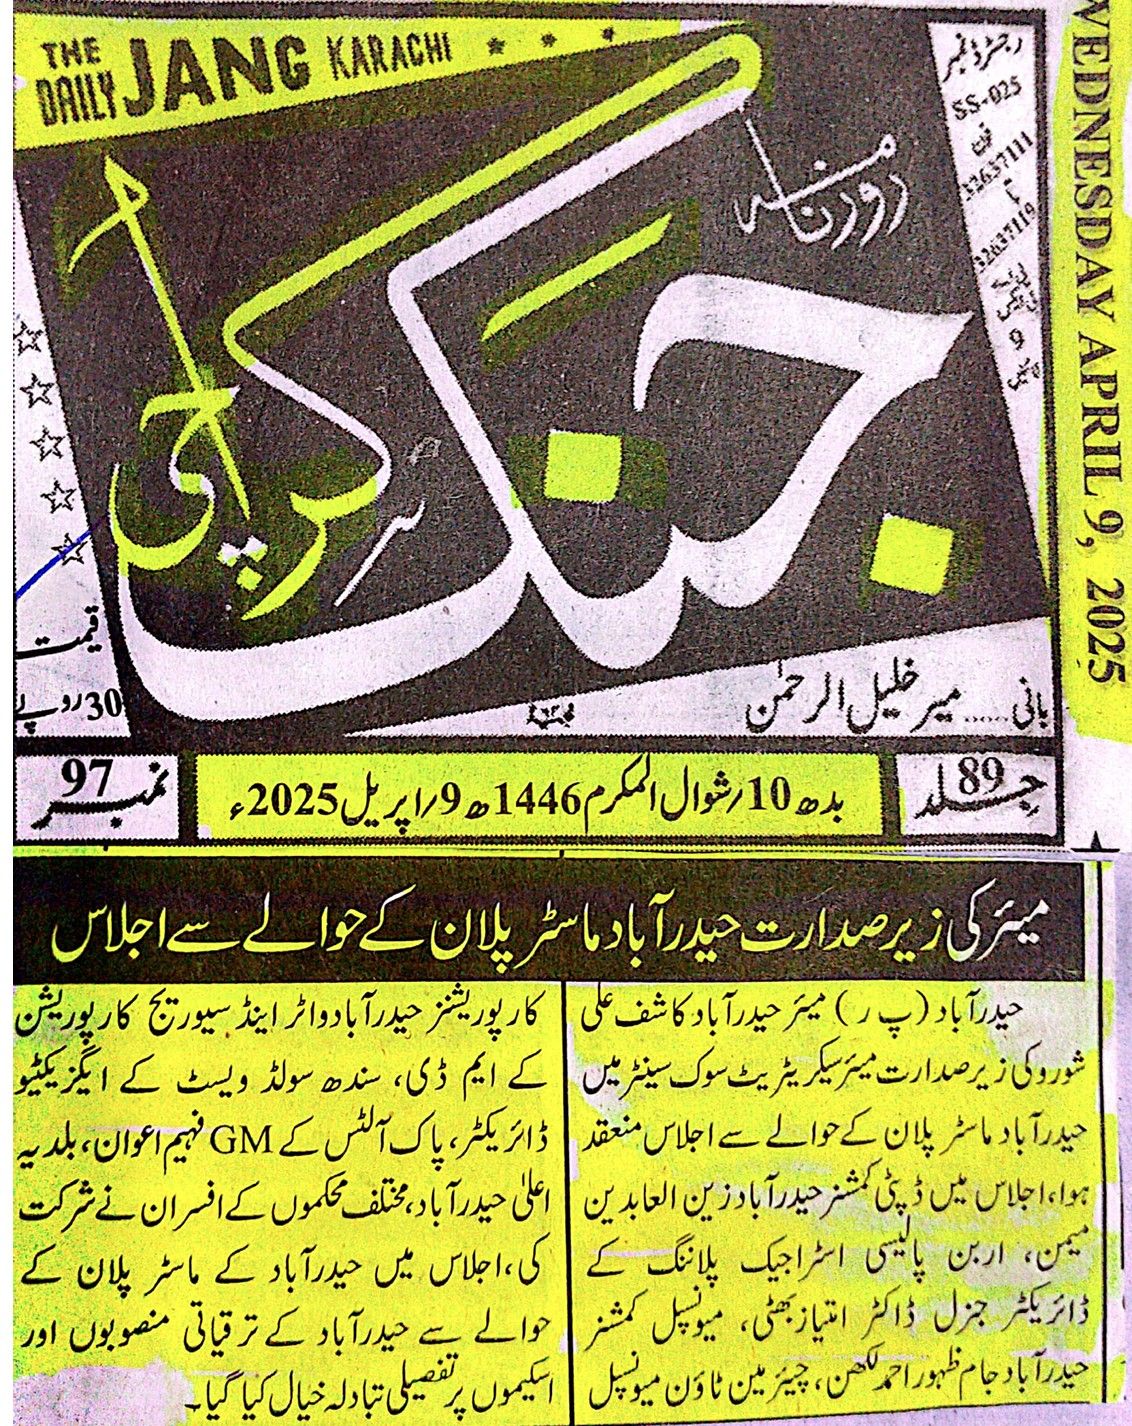 THE DAILY JANG KARACHI
رجسٹرڈ نمبر
SS-025
فون
32637111
تا
32637119
روزنامہ
جنگ
کراچی
WEDNESDAY APRIL 9, 2025
قیمت
30 روپے
بانی ..... میر خلیل الرحمٰن
جلد 89
بدھ 10؍شوال المکرم 1446ھ 9؍اپریل 2025ء
نمبر 97
میئر کی زیر صدارت حیدرآباد ماسٹر پلان کے حوالے سے اجلاس
حیدرآباد (پ ر) میئر حیدرآباد کاشف علی
شورو کی زیر صدارت میئر سیکریٹریٹ سوک سینٹر میں
حیدرآباد ماسٹر پلان کے حوالے سے اجلاس منعقد
ہوا، اجلاس میں ڈپٹی کمشنر حیدرآباد زین العابدین
میمن، اربن پالیسی اسٹراجیک پلاننگ کے
ڈائریکٹر جنرل ڈاکٹر امتیاز بھٹی، میونسپل کمشنر
حیدرآباد جام ظہور احمد لکھن، چیئرمین ٹاؤن میونسپل
کارپوریشنز حیدرآباد واٹر اینڈ سیوریج کارپوریشن
کے ایم ڈی، سندھ سولڈ ویسٹ کے ایگزیکٹیو
ڈائریکٹر، پاک آلٹس کے GM فہیم اعوان، بلدیہ
اعلیٰ حیدرآباد، مختلف محکموں کے افسران نے شرکت
کی، اجلاس میں حیدرآباد کے ماسٹر پلان کے
حوالے سے حیدرآباد کے ترقیاتی منصوبوں اور
اسکیموں پر تفصیلی تبادلہ خیال کیا گیا۔